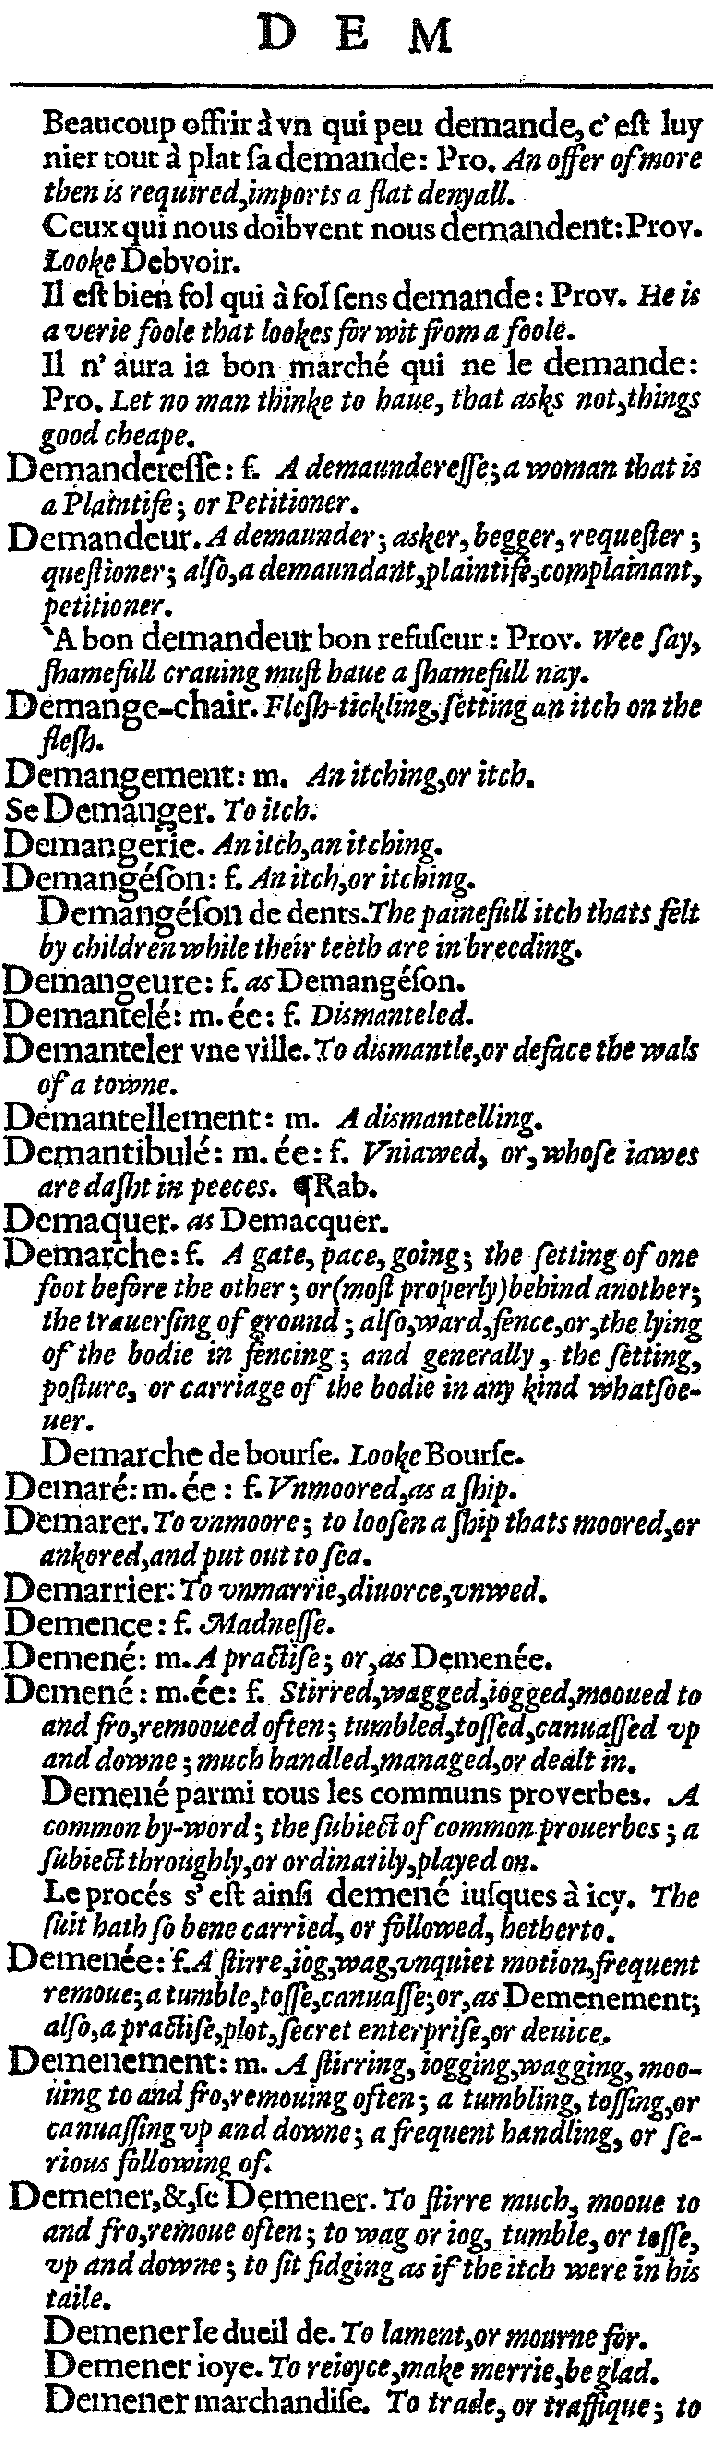 D E M
Beaucoup offrir à vn qui peu demande, c' eſt luy
nier tout à plat ſa demande: Pro. An offer of more
then is required, imports a flat denyall.
Ceux qui nous doibvent nous demandent: Prov.
Looke Debvoir.
Il eſt bien fol qui à fol ſens demande: Prov. He is
a verie foole that lookes for wit from a foole.
Il n' aura ia bon marché qui ne le demande:
Pro. Let no man thinke to haue, that asks not, things
good cheape.
Demandereſſe: f. A demaundereſſe; a woman that is
a Plaintife; or Petitioner.
Demandeur. A demaunder; asker, begger, requeſter;
queſtioner; alſo, a demaundant, plaintife, complainant,
petitioner.
`A bon demandeur bon refuſeur: Prov. Wee ſay,
ſhamefull crauing muſt haue a ſhamefull nay.
Demange-chair. Fleſh-tickling, ſetting an itch on the
fleſh.
Demangement: m. An itching, or itch.
Se Demanger. To itch.
Demangerie. An itch, an itching.
Demangéſon: f. An itch, or itching.
Demangéſon de dents. The painefull itch thats felt
by children while their teeth are in breeding.
Demangeure: f. as Demangéſon.
Demantelé: m. ée: f. Dismanteled.
Demanteler vne ville. To dismantle, or deface the wals
of a towne.
Demantellement: m. A dismantelling.
Demantibulé: m. ée: f. Vniawed, or, whoſe iawes
are daſht in peeces. ¶Rab.
Demaquer. as Demacquer.
Demarche: f. A gate, pace, going; the ſetting of one
foot before the other; or (moſt properly) behind another;
the trauerſing of ground; alſo, ward, fence, or, the lying
of the bodie in fencing; and generally, the ſetting,
poſture, or carriage of the bodie in any kind whatſoe-
uer.
Demarche de bourſe. Looke Bourſe.
Demaré: m. ée: f. Vnmoored, as a ſhip.
Demarer. To vnmoore; to looſen a ſhip thats moored, or
ankored, and put out to ſea.
Demarrier: To vnmarrie, diuorce, vnwed.
Demence: f. Madneſſe.
Demené: m. A practiſe; or, as Demenée.
Demené: m. ée: f. Stirred, wagged, iogged, mooued to
and fro, remooued often; tumbled, toſſed, canuaſſed vp
and downe; much handled, managed, or dealt in.
Demené parmi tous les communs proverbes. A
common by-word; the ſubiect of common prouerbes; a
ſubiect throughly, or ordinarily, played on.
Le procés s' eſt ainſi demené iuſques à icy. The
ſuit hath ſo bene carried, or followed, hetherto.
Demenée: f. A ſtirre, iog, wag, vnquiet motion, frequent
remoue; a tumble, toſſe, canuaſſe; or, as Demenement;
alſo, a practiſe, plot, ſecret enterpriſe, or deuice.
Demenement: m. A ſtirring, iogging, wagging, moo-
uing to and fro, remouing often; a tumbling, toſſing, or
canuaſſing vp and downe; a frequent handling, or ſe-
rious following of.
Demener, &, ſe Demener. To ſtirre much, mooue to
and fro, remoue often; to wag or iog, tumble, or toſſe,
vp and downe; to ſit fidging as if the itch were in his
taile.
Demener le dueil de. To lament, or mourne for.
Demener ioye. To reioyce, make merrie, be glad.
Demener marchandiſe. To trade, or traffique; to